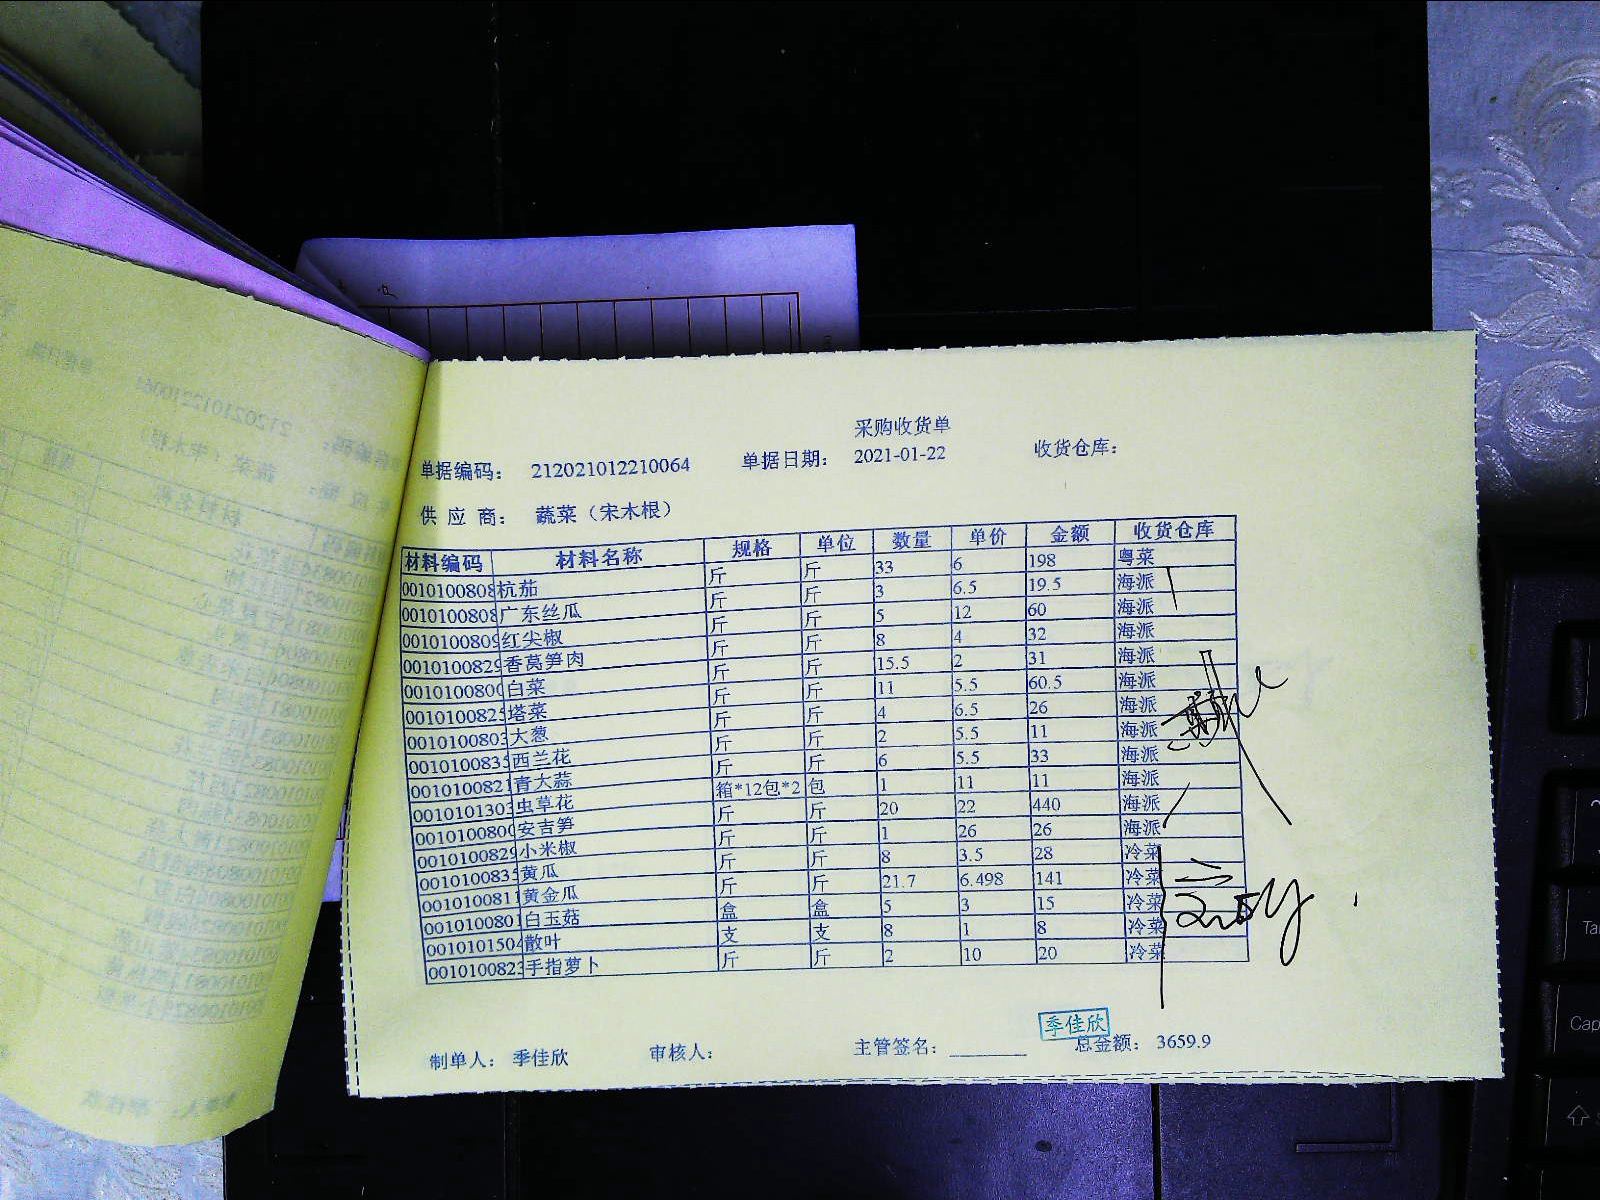 采购收货单
单据编码： 212021012210064 单据日期： 2021-01-22 收货仓库：
供 应 商： 蔬菜（宋木根）
材料编码 材料名称 规格 单位 数量 单价 金额 收货仓库
0010100808 杭茄 斤 斤 33 6 198 粤菜
0010100808 广东丝瓜 斤 斤 3 6.5 19.5 海派
0010100809 红尖椒 斤 斤 5 12 60 海派
0010100829 香莴笋肉 斤 斤 8 4 32 海派
0010100800 白菜 斤 斤 15.5 2 31 海派
0010100825 塔菜 斤 斤 11 5.5 60.5 海派
0010100803 大葱 斤 斤 4 6.5 26 海派
0010100835 西兰花 斤 斤 2 5.5 11 海派
0010100821 青大蒜 斤 斤 6 5.5 33 海派
0010101303 虫草花 箱*12包*2 包 1 11 11 海派
0010100800 安吉笋 斤 斤 20 22 440 海派
0010100829 小米椒 斤 斤 1 26 26 海派
0010100835 黄瓜 斤 斤 8 3.5 28 冷菜
0010100811 黄金瓜 斤 斤 21.7 6.498 141 冷菜
0010100801 白玉菇 盒 盒 5 3 15 冷菜
0010101504 散叶 支 支 8 1 8 冷菜
0010100823 手指萝卜 斤 斤 2 10 20 冷菜
季佳欣
制单人： 季佳欣 审核人： 主管签名： 总金额： 3659.9